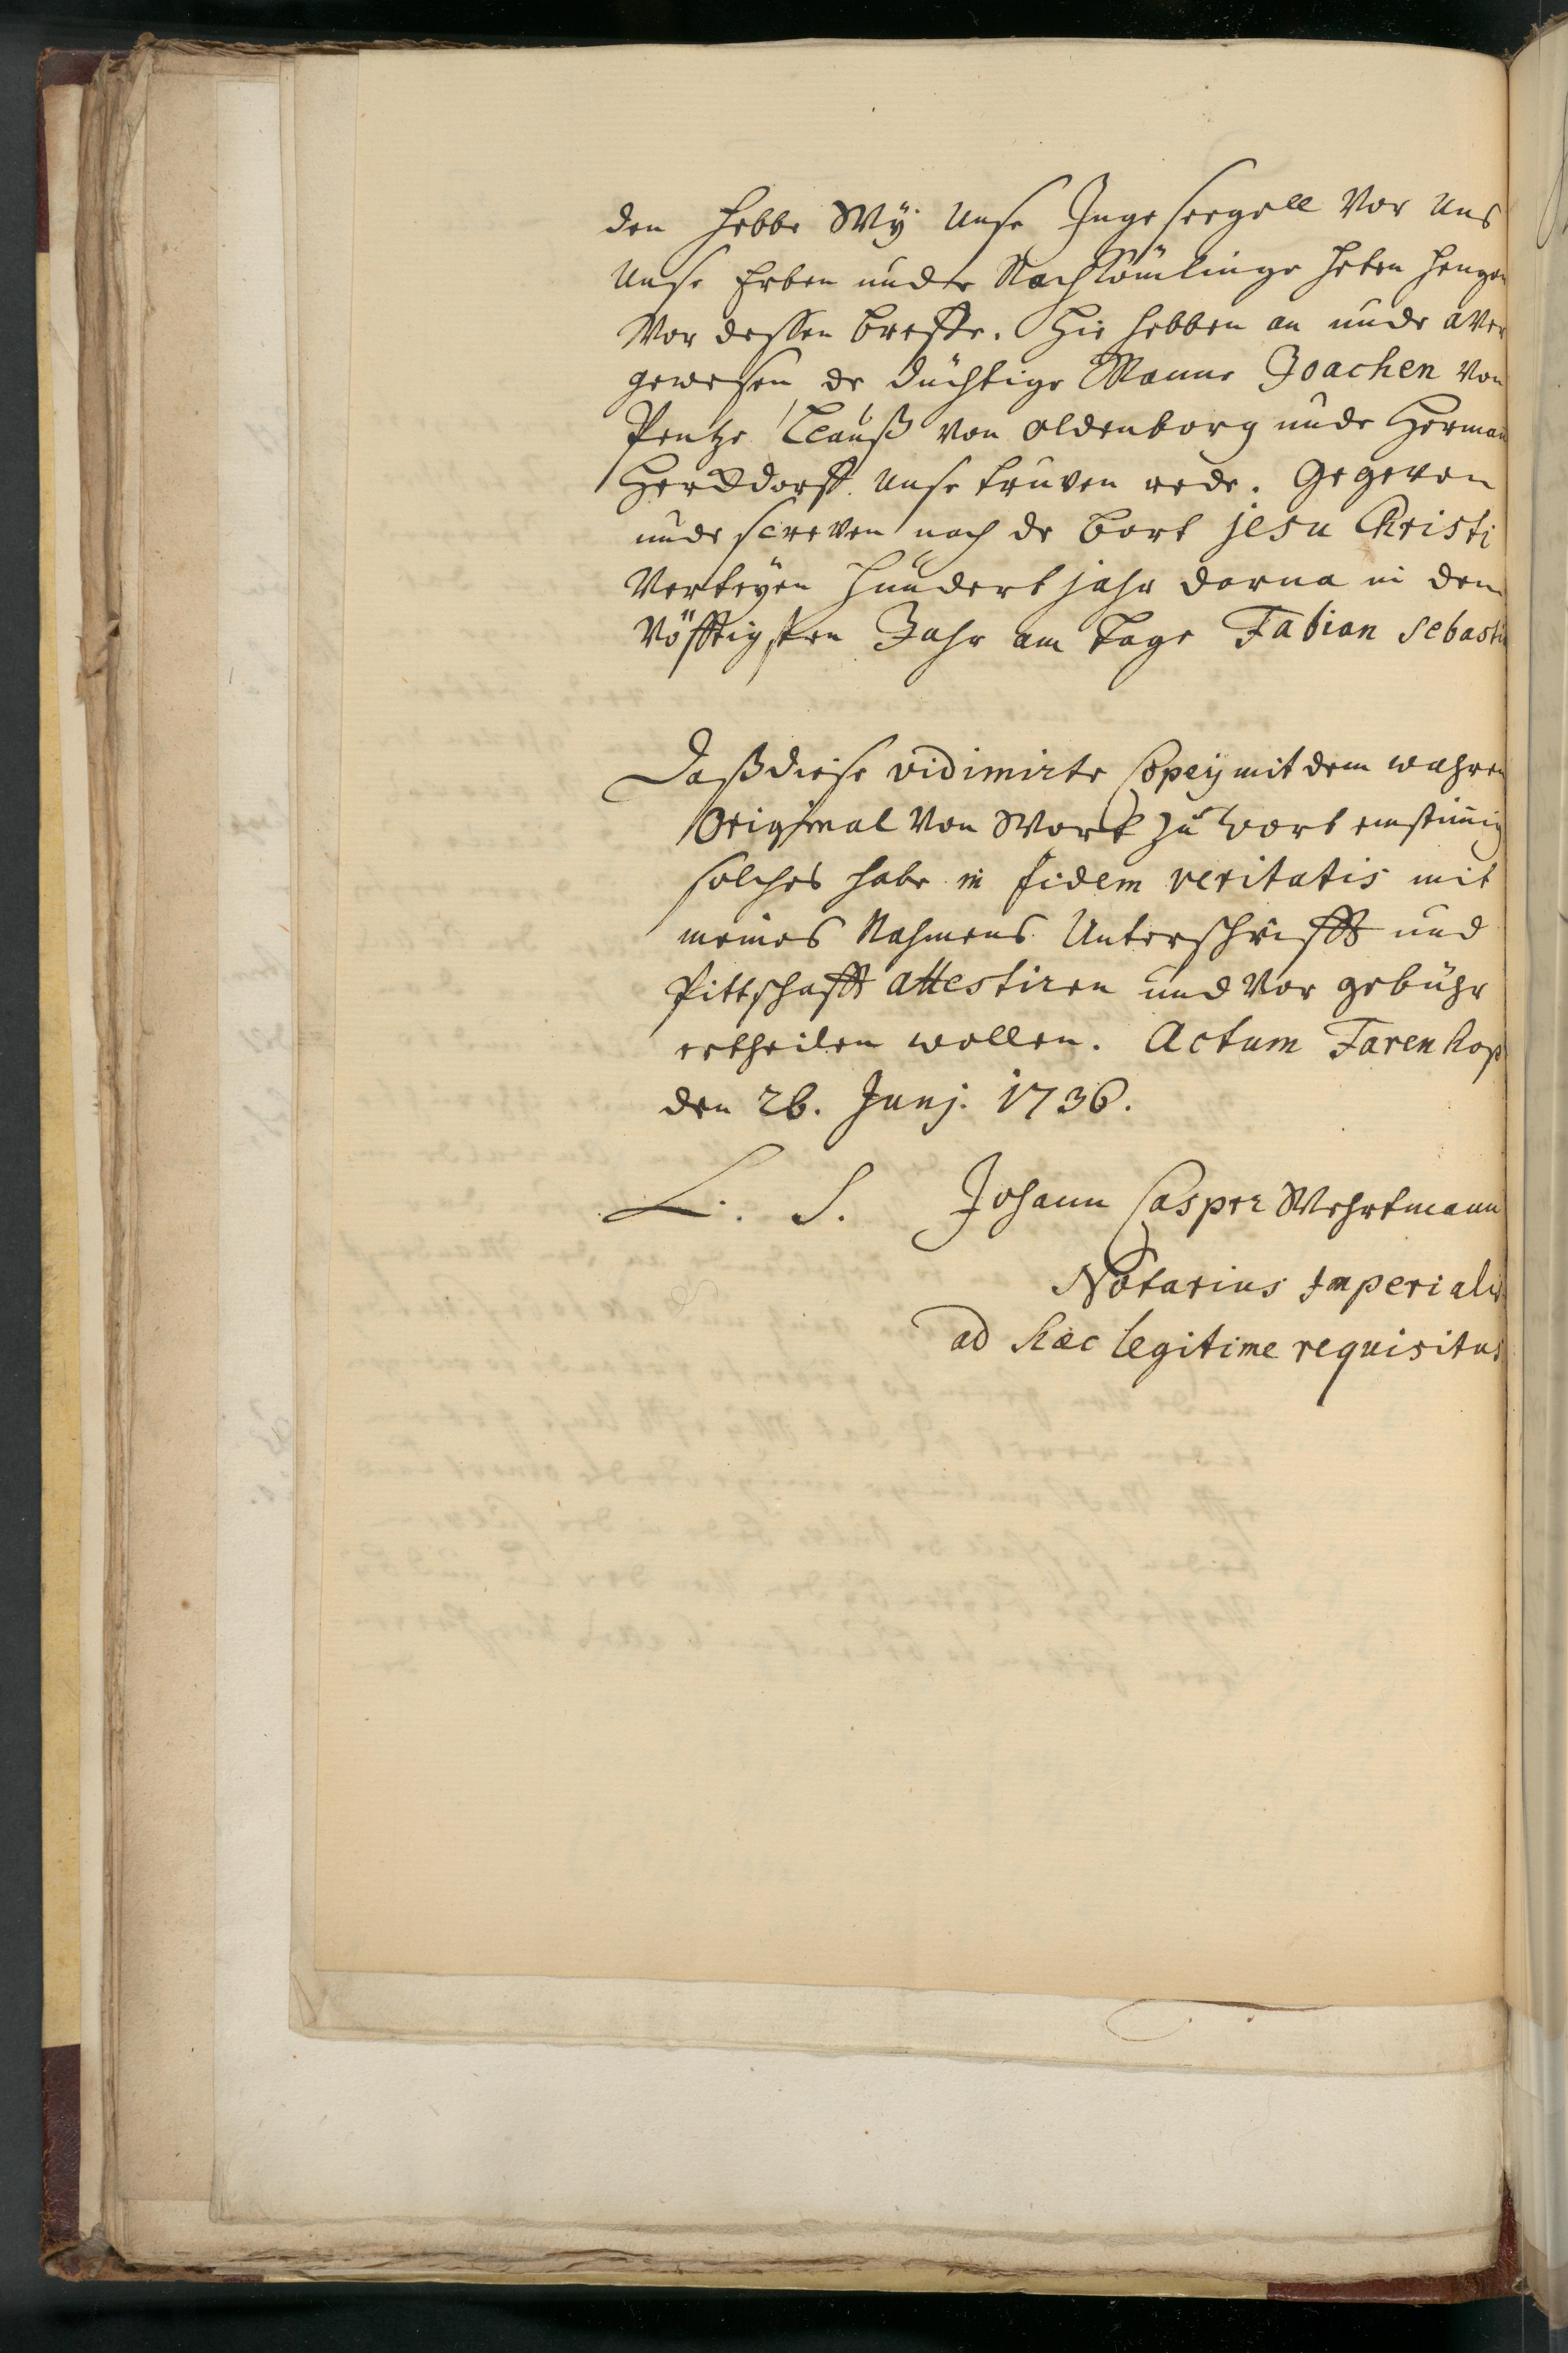 den hebbe Wÿ Unse Ingeseegell Vor Uns
Unse Erben unde Nachkömlinge heten hengen
Vor dessen breffe. Hie hebben an unde aver
gewesen de düchtige Manne Joachen von
Pentze Clauß von Oldenborg unde Herman
dorff Unse truven rede. Gegeven
unde screven nach de bort jesu Christi
Verteyen Hundert jahr darna in dem
Vöfftigsten Jahr am tage Fabian Sebasti
Daß diese vidimirte Copeÿ mit dem wahren
Original Von Wort zu Wort einstimig
solches habe in fidem veritatis mit
meines Nahmens Unterschrifft und
Pittschafft attestiren und Vor gebühr
ertheilen wollen. Actum Farenhop
den 26. Junj. 1736.
L. S. Johann Casper Wehrtmann
Notarius Imperialis
ad haec legitime requisitus